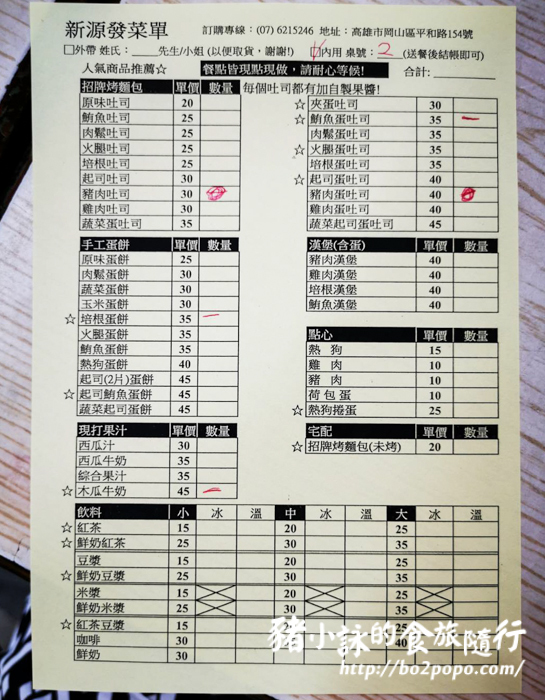 新源發菜單 訂購專線：(07) 6215246 地址：高雄市岡山區平和路154號
□外帶 姓氏：_____先生/小姐 (以便取貨，謝謝!) □內用 桌號：2 (送餐後結帳即可)
人氣商品推薦☆ 餐點皆現點現做，請耐心等候! 合計：
招牌烤麵包 單價 數量 每個吐司都有加自製果醬!
原味吐司 20
鮪魚吐司 25
肉鬆吐司 25
火腿吐司 25
培根吐司 25
起司吐司 30
豬肉吐司 30
雞肉吐司 30
蔬菜蛋吐司 35
☆ 夾蛋吐司 30
☆ 鮪魚蛋吐司 35 一
肉鬆蛋吐司 35
☆ 火腿蛋吐司 35
培根蛋吐司 35
☆ 起司蛋吐司 40
豬肉蛋吐司 40
雞肉蛋吐司 40
蔬菜起司蛋吐司 45
手工蛋餅 單價 數量
原味蛋餅 25
肉鬆蛋餅 30
蔬菜蛋餅 30
玉米蛋餅 30
☆ 培根蛋餅 35 一
火腿蛋餅 35
鮪魚蛋餅 35
熱狗蛋餅 40
起司(2片)蛋餅 45
☆ 起司鮪魚蛋餅 45
蔬菜起司蛋餅 45
漢堡(含蛋) 單價 數量
豬肉漢堡 40
雞肉漢堡 40
培根漢堡 40
鮪魚漢堡 40
點心 單價 數量
熱 狗 15
雞 肉 10
豬 肉 10
荷包蛋 10
☆ 熱狗捲蛋 25
現打果汁 單價 數量
西瓜汁 30
西瓜牛奶 35
綜合果汁 35
☆ 木瓜牛奶 45 一
宅配 單價 數量
☆ 招牌烤麵包(未烤) 20
飲料 小 冰 溫 中 冰 溫 大 冰 溫
☆ 紅茶 15 20 25
☆ 鮮奶紅茶 25 30 35
豆漿 15 20 25
☆ 鮮奶豆漿 25 30 35
米漿 15 20 25
鮮奶米漿 25 30 35
☆ 紅茶豆漿 15 20 25
咖啡 30 40
鮮奶 30
豬小詠的食旅隨行
http://bo2popo.com/